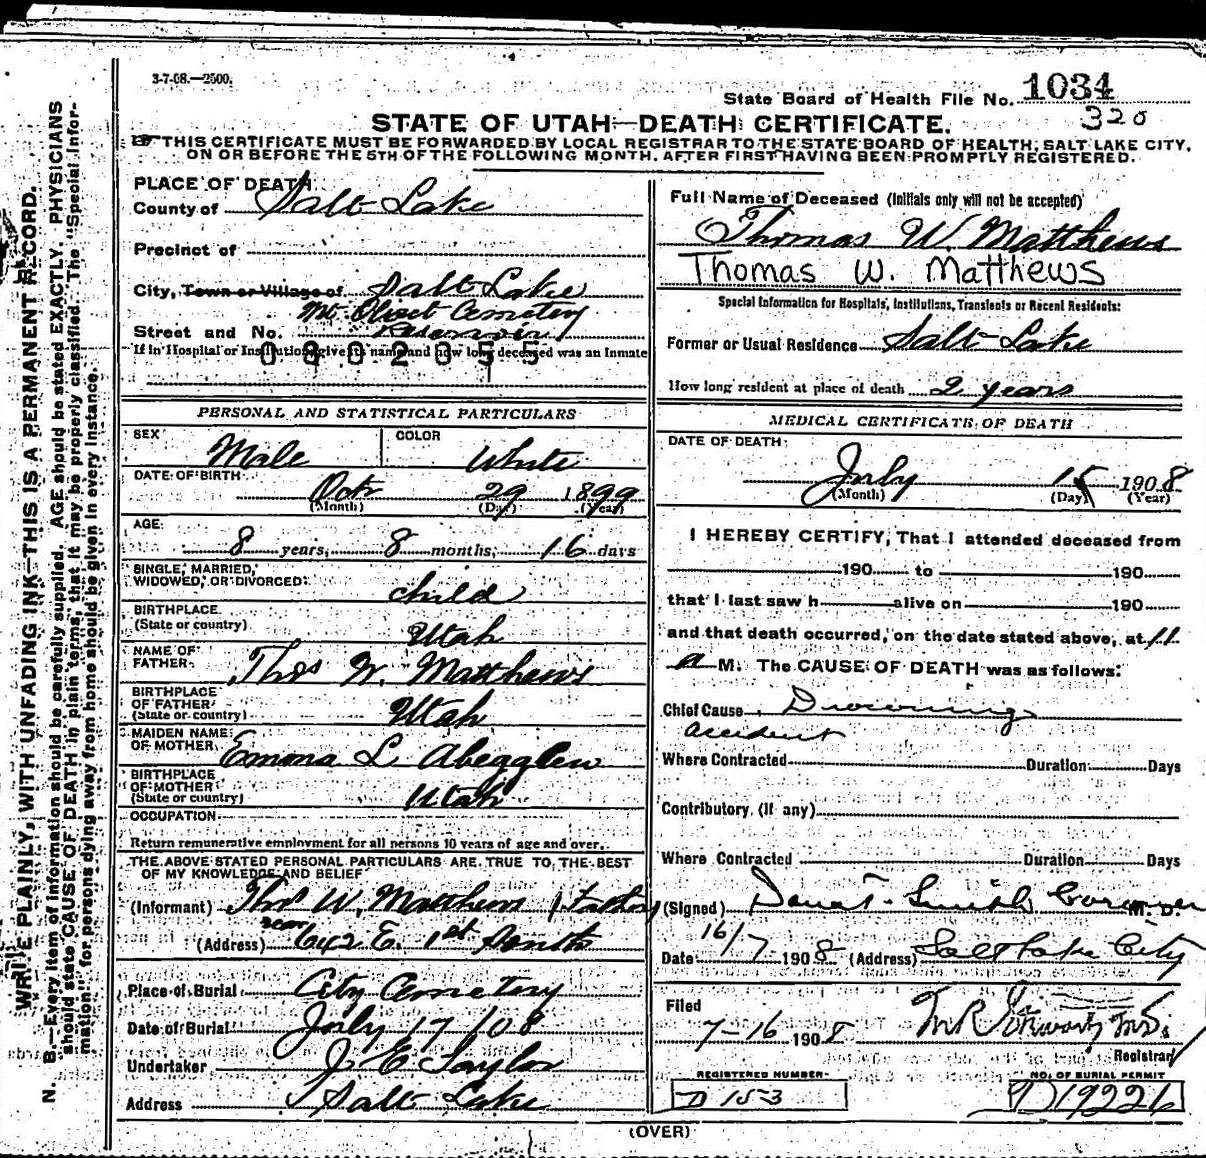 3-7-08.—2500.
State Board of Health File No. 1034
320
STATE OF UTAH—DEATH CERTIFICATE.
THIS CERTIFICATE MUST BE FORWARDED BY LOCAL REGISTRAR TO THE STATE BOARD OF HEALTH, SALT LAKE CITY,
ON OR BEFORE THE 5TH OF THE FOLLOWING MONTH, AFTER FIRST HAVING BEEN PROMPTLY REGISTERED.
WRITE PLAINLY, WITH UNFADING INK—THIS IS A PERMANENT RECORD.
N. B.—Every item of information should be carefully supplied. AGE should be stated EXACTLY. PHYSICIANS
should state CAUSE OF DEATH in plain terms, that it may be properly classified. The "Special Infor-
mation" for persons dying away from home should be given in every instance.
PLACE OF DEATH
County of Salt Lake
Precinct of
City, Town or Village of Salt Lake
Mt Olivet Cemetery
Street and No. Reservoir
If in Hospital or Institution, give its name and how long deceased was an Inmate
0802055
PERSONAL AND STATISTICAL PARTICULARS
SEX Male COLOR White
DATE OF BIRTH Oct 29 1899
(Month) (Day) (Year)
AGE
8 years, 8 months, 16 days
SINGLE, MARRIED,
WIDOWED, OR DIVORCED: child
BIRTHPLACE
(State or country) Utah
NAME OF
FATHER Thos W. Matthews
BIRTHPLACE
OF FATHER
(State or country) Utah
MAIDEN NAME
OF MOTHER Emma L Abegglen
BIRTHPLACE
OF MOTHER
(State or country) Utah
OCCUPATION
Return remunerative employment for all persons 10 years of age and over.
THE ABOVE STATED PERSONAL PARTICULARS ARE TRUE TO THE BEST
OF MY KNOWLEDGE AND BELIEF
(Informant) Thos W. Matthews (Father)
(Address) rear 642 E. 1st South
Place of Burial City Cemetery
Date of Burial July 17/08
Undertaker J. E Taylor
Address Salt Lake
Full Name of Deceased (Initials only will not be accepted)
Thomas W. Matthews
Thomas W. Matthews
Special Information for Hospitals, Institutions, Transients or Recent Residents:
Former or Usual Residence Salt Lake
How long resident at place of death 2 years
MEDICAL CERTIFICATE OF DEATH
DATE OF DEATH:
July 15 1908
(Month) (Day) (Year)
I HEREBY CERTIFY, That I attended deceased from
190 to 190
that I last saw h alive on 190
and that death occurred, on the date stated above, at 11
a M. The CAUSE OF DEATH was as follows:
Chief Cause Drowning
accident
Where Contracted Duration Days
Contributory (if any)
Where Contracted Duration Days
(Signed) Dana T. Smith Coroner M. D.
Date 16/7 1908 (Address) Salt Lake City
Filed
7-16 1908
Registrar
REGISTERED NUMBER
D 153
NO. OF BURIAL PERMIT
D19226
(OVER)